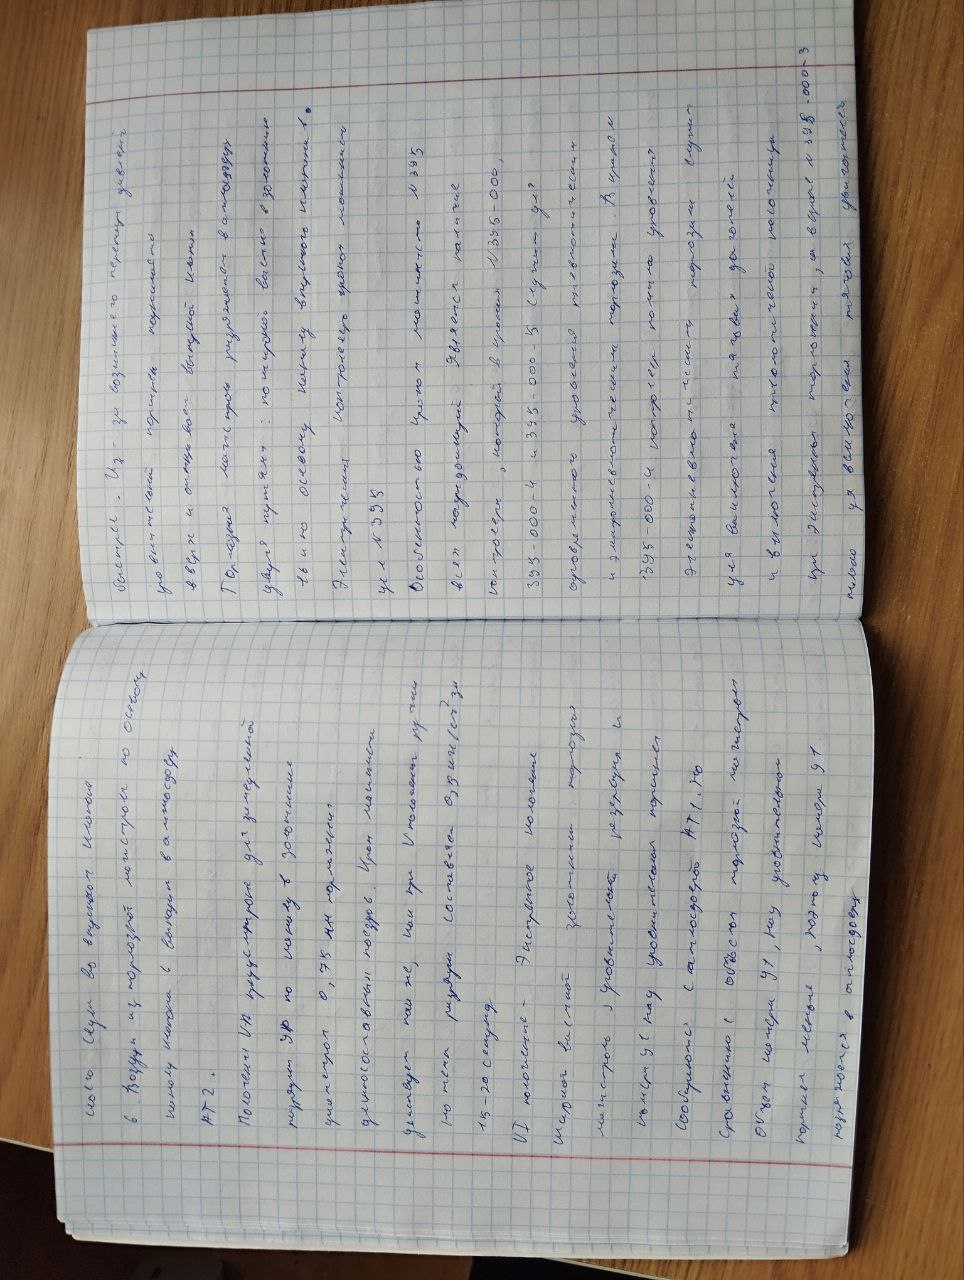 ного седла во впускном клапане
в Воздух из тормозной магистрали по осевому
каналу клапана выходит в атмосферу
АТ2.
Положение VА предусмотрено для замедленной
разрядки УР по каналу в золотнике
диаметром 0,75 мм торможения
длинносоставных поездов. Кран машиниста
действует так же, как при V положении ручки
но темп разрядки составляет 0,5 кгс/см² за
15-20 секунд
VI положение - Экстренное положение
широкой выемкой золотника тормозная
магистраль, уравнительный резервуар и
камера У1 над уравнительным поршнем
сообщаются с атмосферой АТ1. По
сравнению с объёмом тормозной магистрали
объём камеры У1, над уравнительным
поршнем меньше, поэтому камера У1
разряжается в атмосферу
быстрее. Из-за возникшего перепада давлений
уравнительный поршень поднимается
вверх и открывает выпускной клапан
Тормозная магистраль разряжается в атмосферу
двумя путями: по широкой выемке в золотнике
и по осевому каналу впускного клапана.
Электрический контроллер крана машиниста
усл N 395
Особенностью кранов машиниста N 395
всех модификаций является наличие
контроллера, который в кранах N395-000,
395-000-4 и 395-000-5 служит для
одновременного управления пневматическим
и электропневматическим тормозами. В кранах
395-000-4 контроллер помимо управления
электропневматическим тормозом служит
для выключения тяговых двигателей
и включения пневматической песочницы
при экстренном торможении, а в кране N 395-000-3
только для выключения тяговых двигателей